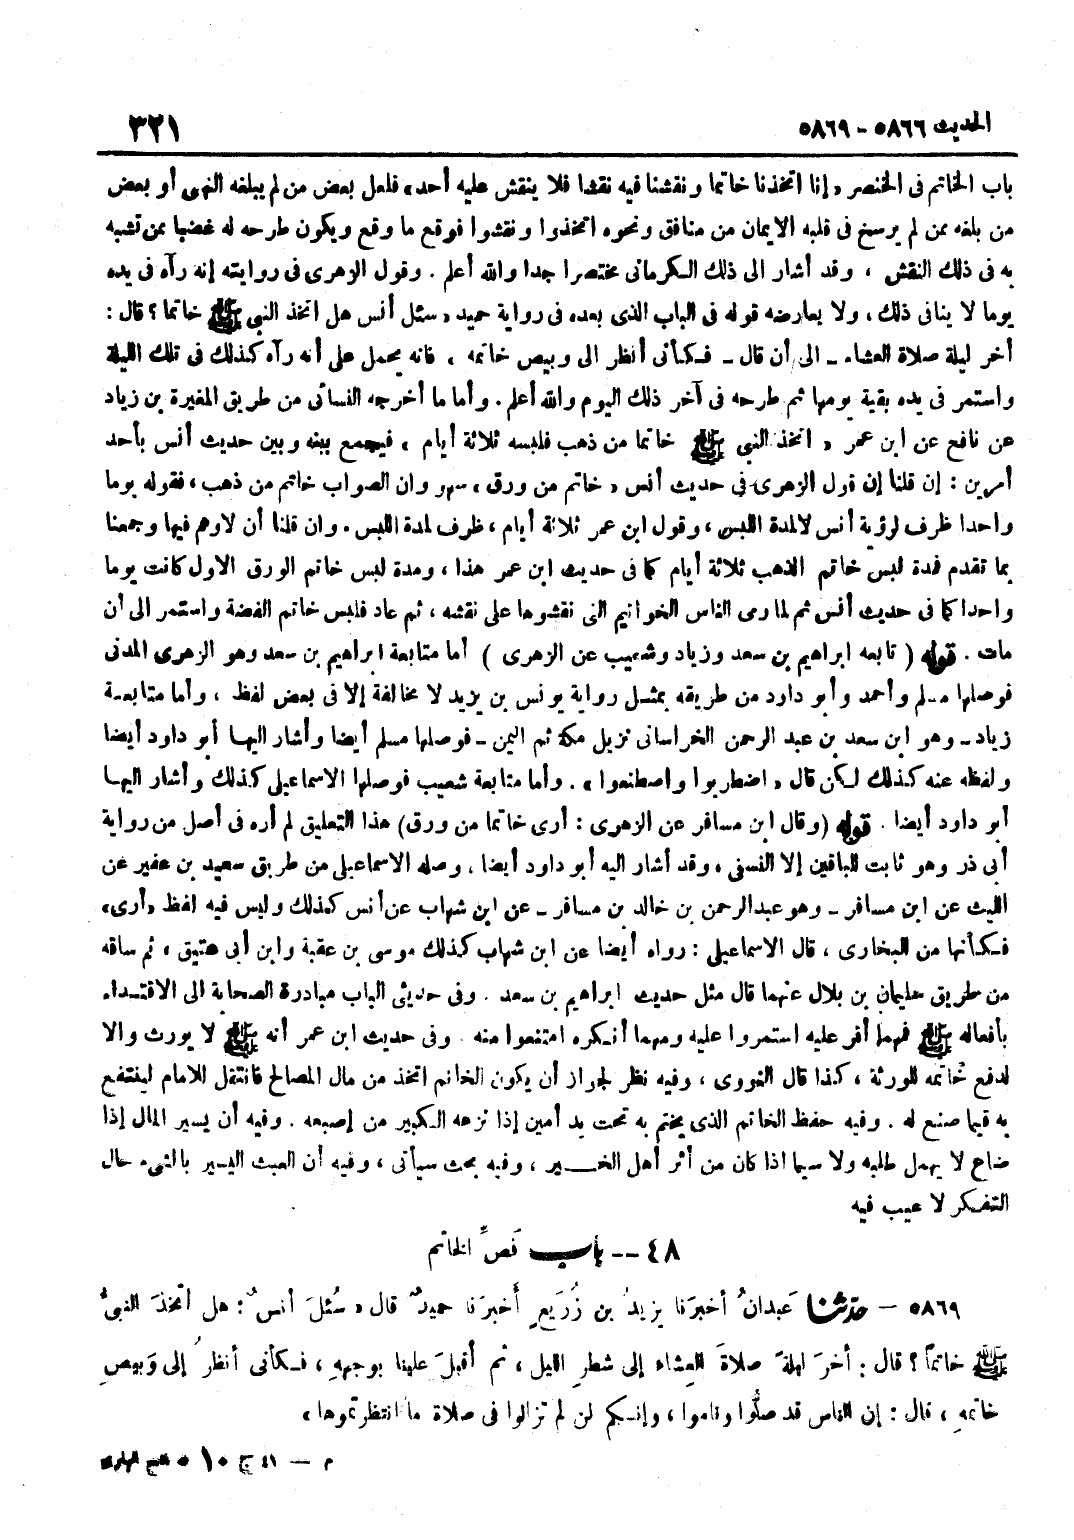 الحديث ٥٨٦٦ - ٥٨٦٩ ٣٢١
باب الخاتم فى الخنصر « إنا اتخذنا خاتما ونقشنا فيه نقشا فلا ينقش عليه أحد » فلعل بعض من لم يبلغه النهى أو بعض
من بلغه ممن لم يرسخ فى قلبه الايمان من منافق ونحوه اتخذوا ونقشوا فوقع ما وقع ويكون طرحه له غضبا ممن تشبه
به فى ذلك النقش ، وقد أشار الى ذلك الكرمانى مختصرا جدا والله أعلم . وقول الزهرى فى روايته إنه رآه فى يده
يوما لا ينافى ذلك ، ولا يعارضه قوله فى الباب الذى بعده فى رواية حميد « سئل أنس هل اتخذ النبى ﷺ خاتما ؟ قال :
أخر ليلة صلاة العشاء ـ الى أن قال ـ فكأنى أنظر الى وبيص خاتمه ، فانه يحمل على أنه رآه كذلك فى تلك الليلة
واستمر فى يده بقية يومها ثم طرحه فى آخر ذلك اليوم والله أعلم . وأما ما أخرجه النسائى من طريق المغيرة بن زياد
عن نافع عن ابن عمر « اتخذ النبى ﷺ خاتما من ذهب فلبسه ثلاثة أيام ، فيجمع بينه وبين حديث أنس بأحد
أمرين : إن قلنا إن قول الزهرى فى حديث أنس « خاتم من ورق ، سهو وان الصواب خاتم من ذهب ، فقوله يوما
واحدا ظرف لرؤية أنس لالمدة اللبس ، وقول ابن عمر ثلاثة أيام ، ظرف لمدة اللبس . وان قلنا أن لاوهم فيها وجمعنا
بما تقدم فمدة لبس خاتم الذهب ثلاثة أيام كما فى حديث ابن عمر هذا ، ومدة لبس خاتم الورق الاول كانت يوما
واحدا كما فى حديث أنس ثم لما رمى الناس الخواتيم التى نقشوها على نقشه ، ثم عاد فلبس خاتم الفضة واستمر الى أن
مات . قوله ( تابعه ابراهيم بن سعد وزياد وشعيب عن الزهرى ) أما متابعة ابراهيم بن سعد وهو الزهرى المدنى
فوصلها مسلم وأحمد وأبو داود من طريقه بمثل رواية يونس بن يزيد لا مخالفة إلا فى بعض لفظ ، وأما متابعة
زياد ـ وهو ابن سعد بن عبد الرحمن الخراسانى نزيل مكة ثم اليمن ـ فوصلها مسلم أيضا وأشار اليها أبو داود أيضا
ولفظه عنه كذلك لكن قال « اضطربوا واصطنعوا » . وأما متابعة شعيب فوصلها الاسماعيلى كذلك وأشار اليها
أبو داود أيضا . قوله (وقال ابن مسافر عن الزهرى : أرى خاتما من ورق) هذا التعليق لم أره فى أصل من رواية
أبى ذر وهو ثابت للباقين إلا النسفى ، وقد أشار اليه أبو داود أيضا ، وصله الاسماعيلى من طريق سعيد بن عفير عن
الليث عن ابن مسافر ـ وهو عبدالرحمن بن خالد بن مسافر ـ عن ابن شهاب عن أنس كذلك وليس فيه لفظ «أرى»
فكأنها من البخارى ، قال الاسماعيلى : رواه أيضا عن ابن شهاب كذلك موسى بن عقبة وابن أبى عتيق ، ثم ساقه
من طريق سليمان بن بلال عنهما قال مثل حديث ابراهيم بن سعد . وفى حديثى الباب مبادرة الصحابة الى الاقتداء
بأفعاله ﷺ فمهما أقر عليه استمروا عليه ومهما أنكره امتنعوا منه . وفى حديث ابن عمر أنه ﷺ لا يورث والا
لدفع خاتمه للورثة ، كذا قال النووى ، وفيه نظر لجواز أن يكون الخاتم اتخذ من مال المصالح فانتقل للامام لينتفع
به فيما صنع له . وفيه حفظ الخاتم الذى يختم به تحت يد أمين إذا نزعه الكبير من إصبعه . وفيه أن يسير المال إذا
ضاع لا يهمل طلبه ولا سيما اذا كان من أثر أهل الخير ، وفيه بحث سيأتى ، وفيه أن العبث اليسير بالشىء حال
التفكر لا عيب فيه
٤٨ -- باب فَصِّ الخاتم
٥٨٦٩ - حدّثنا عَبدانُ أخبرَنا يزيدُ بن زُرَيعٍ أخبرَنا حميدٌ قال « سُئلَ أنسٌ : هل اتخذَ النبىُّ
ﷺ خاتماً ؟ قال : أخرَ ليلةً صلاةَ العِشاء إلى شطرِ الليل ، ثم أقبلَ علينا بوجههِ ، فكأنى أنظرُ إلى وَبيصِ
خاتمهِ ، قال : إن الناس قد صلُّوا وناموا ، وإنكم لن تزالوا فى صلاة ما انتظرتموها »
م - ٤١ ج ١٠ * فتح البارى